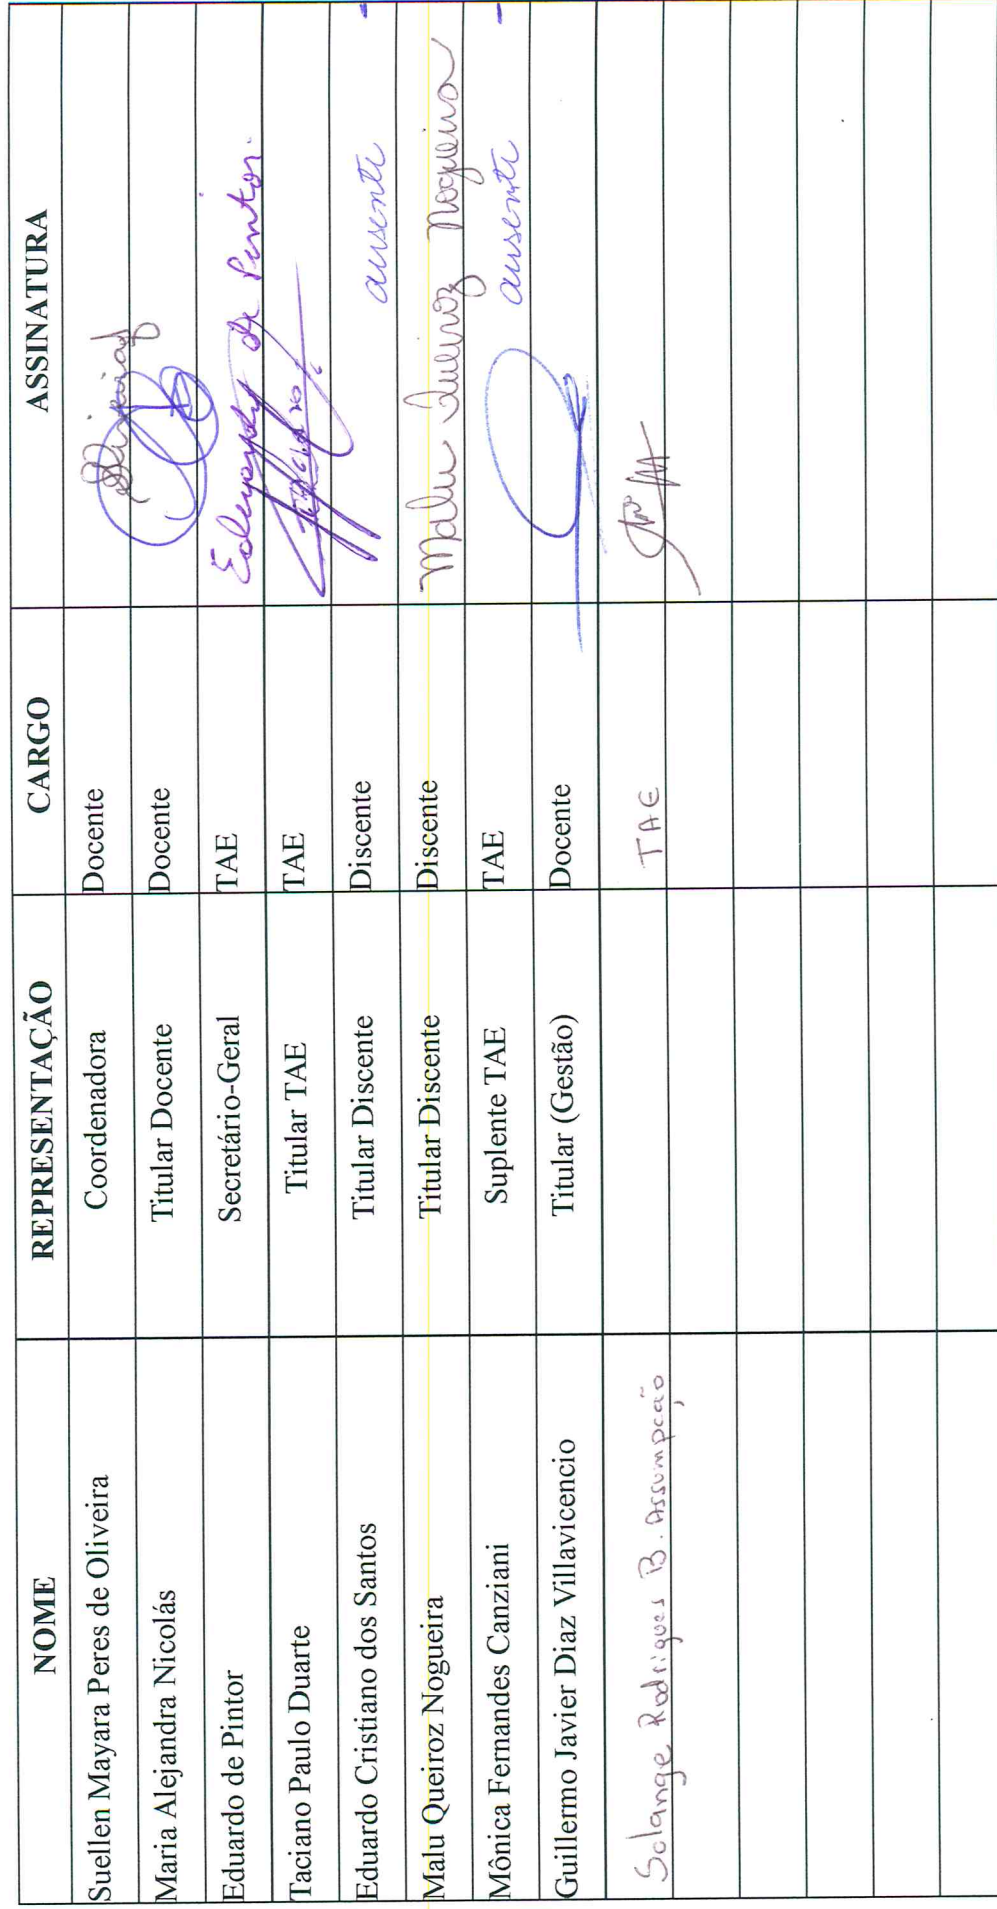 NOME REPRESENTAÇÃO CARGO ASSINATURA
Suellen Mayara Peres de Oliveira Coordenadora Docente
Maria Alejandra Nicolás Titular Docente Docente
Eduardo de Pintor Secretário-Geral TAE Eduardo de Pintor.
Taciano Paulo Duarte Titular TAE TAE
Eduardo Cristiano dos Santos Titular Discente Discente ausente -
Malu Queiroz Nogueira Titular Discente Discente Malu Queiroz Nogueira
Mônica Fernandes Canziani Suplente TAE TAE ausente -
Guillermo Javier Diaz Villavicencio Titular (Gestão) Docente
Solange Rodrigues B. Assumpção TAE